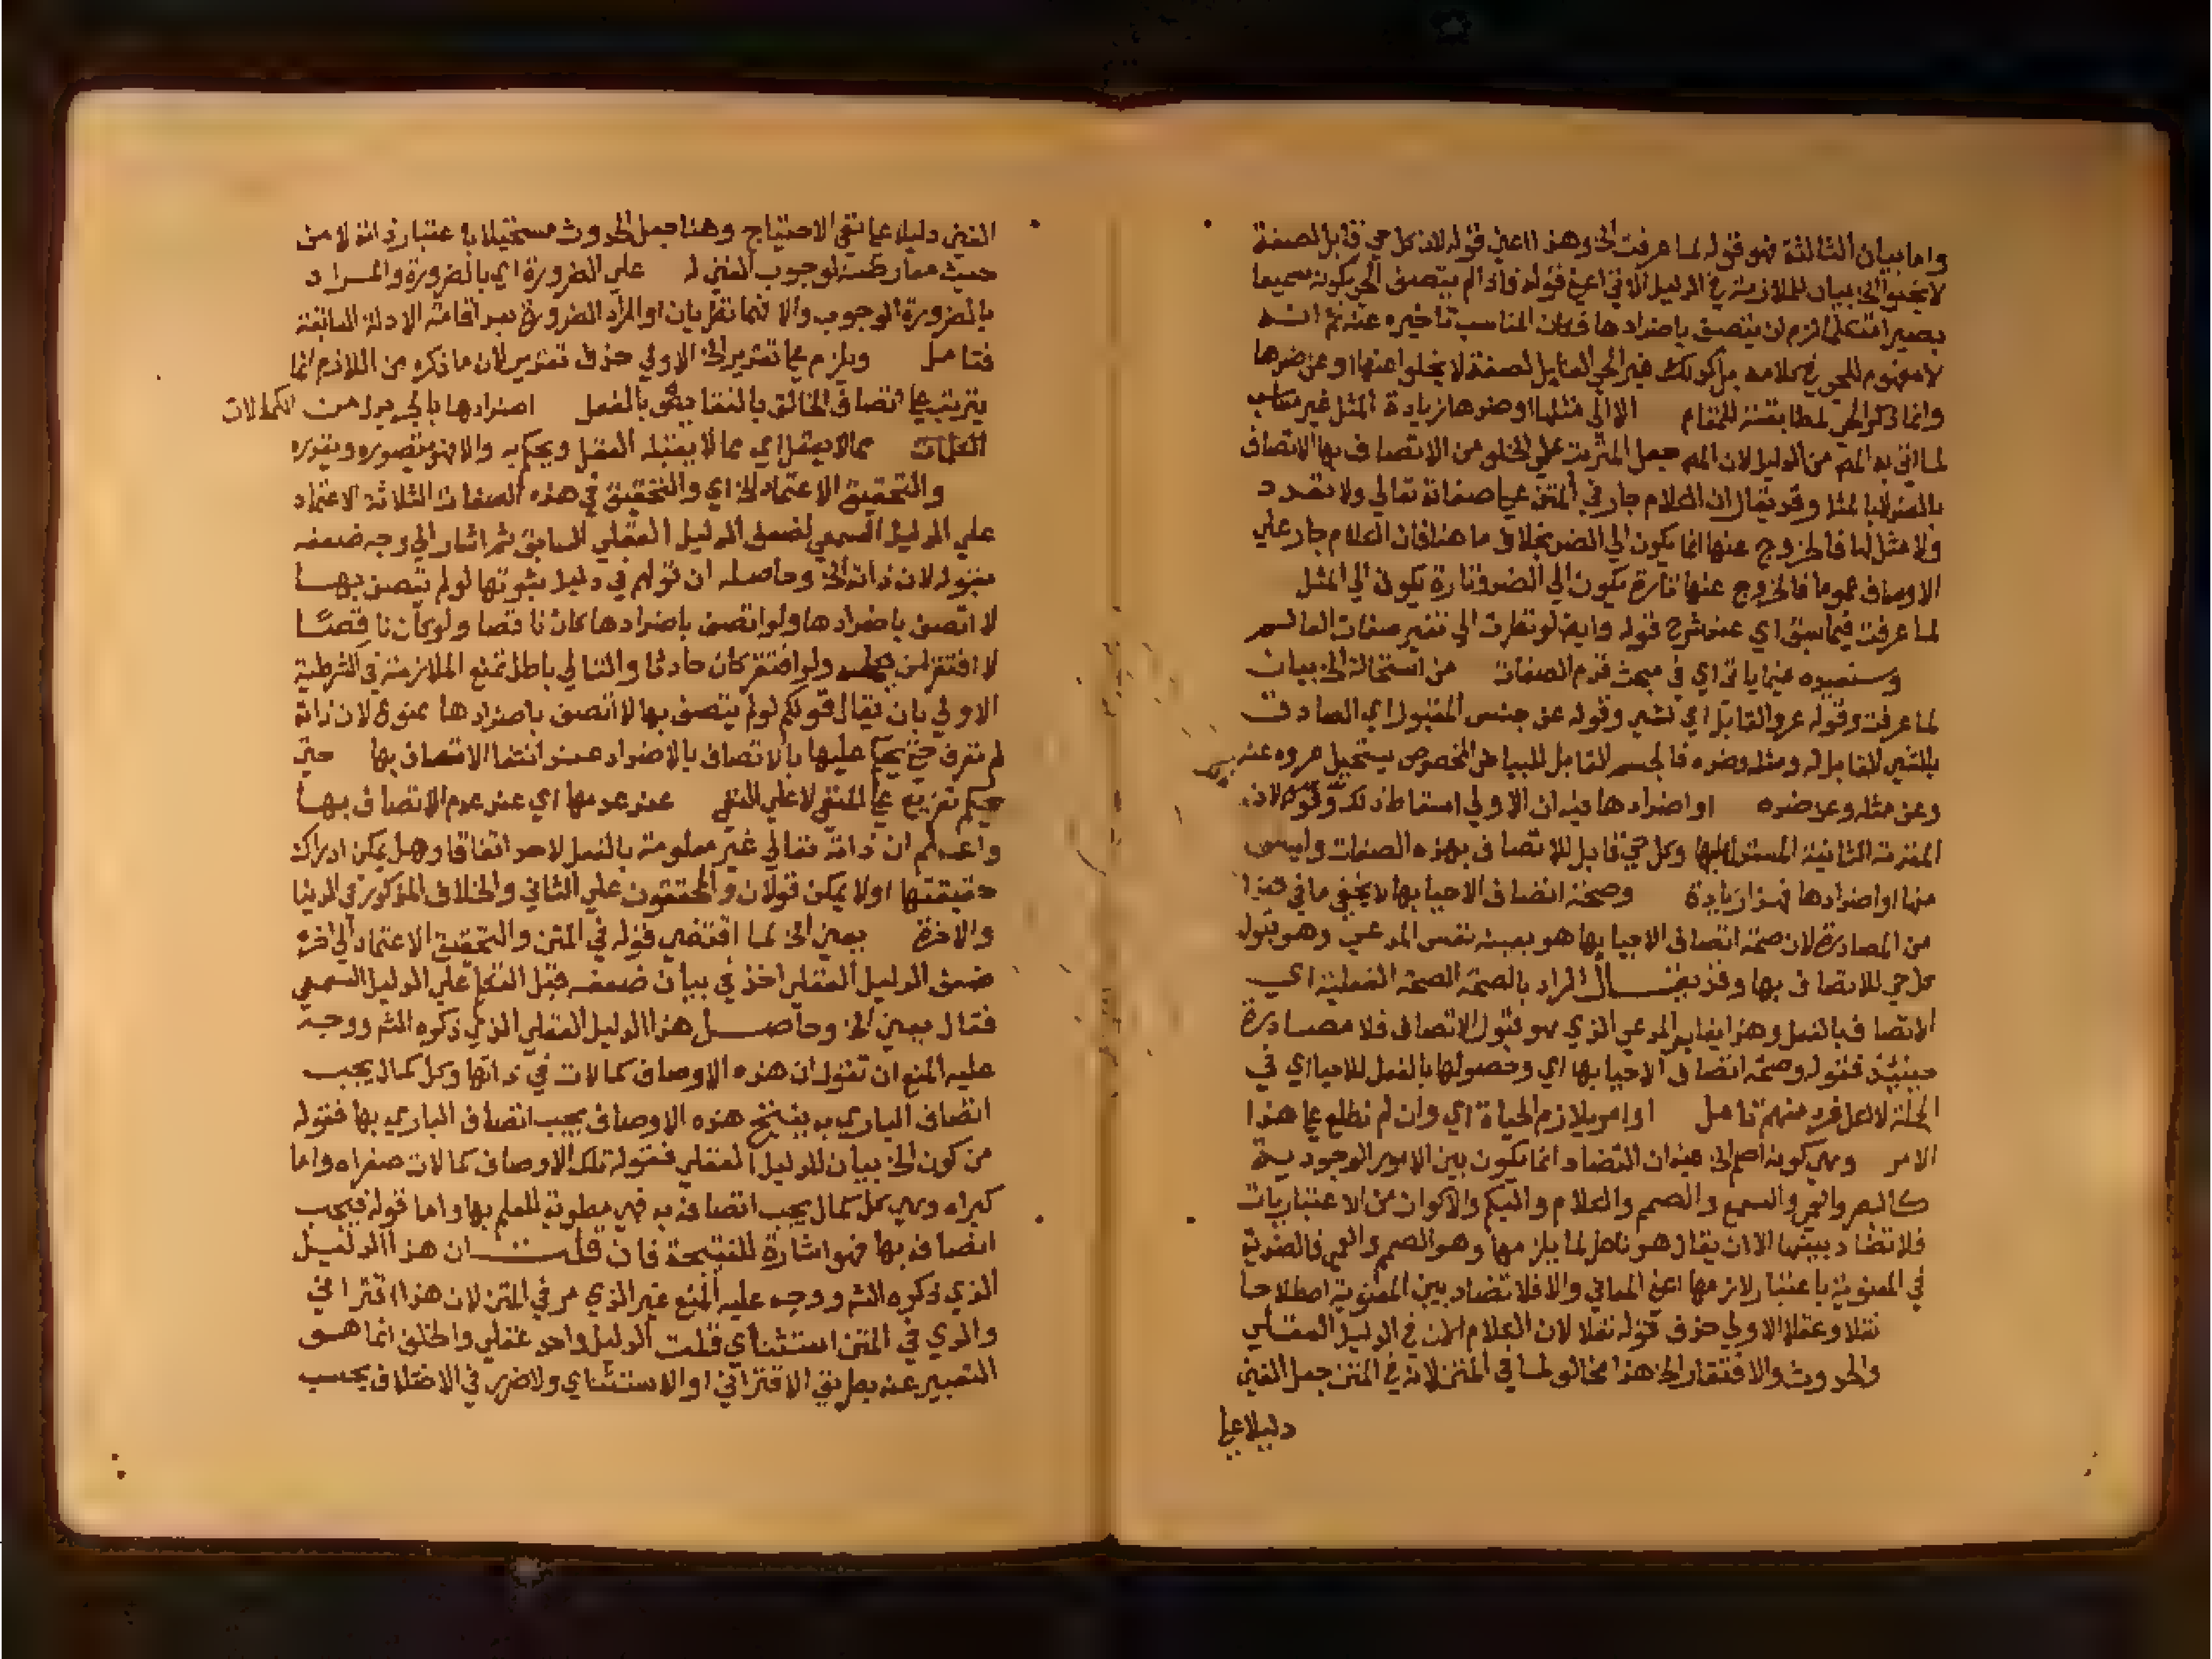 واما بيان الثالثة فهو قوله لما عرفت الخ وهذا اعني قوله لان كل حي قابل لصفة
لا يخلو الخ بيان للملازمة في الدليل الاتي اعني قوله فاذا لم يتصف الحي بكونه سميعا
بصيرا متكلما لزم ان يتصف باضدادها فكان المناسب تاخيره عنه ثم انه
لا مفهوم للحي في كلامه بل كذلك غير الحي القابل لصفة لا يخلو اعنها او عن ضدها
وانما ذكر الحي لمطابقته للمقام الا الى مثلها او ضدها زيادة المثل غير مناسب
لما اتى به المص من الدليل لان المص جعل المترتب علي الخلو من الاتصاف بها الاتصاف
بالضد لا بالمثل وقد يقال ان الكلام جار في المتن على صفاته تعالي ولا تعدد
ولا مثل لها فالخروج عنها انما يكون الي الضد بخلاف ما هنا فان الكلام جار علي
الاوصاف عموما فالخروج عنها تارة يكون الي الضد وتارة يكون الي المثل
لما عرفت فيما سبق اي عند شرح قوله وايضا لو نظرت الي تغير صفات العالم
وسنعيده فيما ياتي اي في مبحث قدم الصفات من استحالة الخ بيان
لما عرفت وقوله عرو القابل اي لشي وقوله عن جنس المقبول اي الصادق
بالشي القابل له ومثله وضده فالجسم القابل للبياض المخصوص يستحيل عروه عنه
وعن مثله وعن ضده او اضدادها فيه ان الاولي اسقاط ذلك وقوله لان
المقدمة الثانية المستدل عليها وكل حي قابل للاتصاف بهذه الصفات وليس
منها او اضدادها فهذا زيادة وصحة اتصاف الاحيا بها لا يخفي ما في هذا
من المصادرة لان صحة اتصاف الاحيا بها هو بعينه نفس المدعي وهو قبول
كل حي للاتصاف بها وقد يقال المراد بالصحة الصحة الفعلية اي
الاتصاف بالفعل وهذا يغاير المدعي الذي هو قبول الاتصاف فلا مصادرة
حينئذ فقوله وصحة اتصاف الاحيا بها اي وحصولها بالفعل للاحيا اي في
الجملة لا لكل فرد منهم تامل او امر يلازم الحياة اي وان لم نطلع على هذا
الامر وهي كونه اصم الخ فيه ان التضاد انما يكون بين الامور الوجودية
كالبصر والعمي والسمع والصمم والكلام والبكم والاكوان من الاعتباريات
فلا تضاد بينها الا ان يقال هو ناظر لما يلزمها وهو الصمم والعمي فالضدية
في المعنوية باعتبار لازمها اعني المعاني والا فلا تضاد بين المعنوية اصطلاحا
نقلا وعقلا الاولي حذف قوله نقلا لان الكلام الان في الدليل العقلي
والحدوث والافتقار الخ هذا مخالف لما في المتن لانه في المتن جعل الغني
دليلا علي
الغني دليلا علي نفي الاحتياج وهنا جعل الحدوث مستحيلا باعتبار ذاته لا من
حيث معارضته لوجوب الغني له علي الضرورة اي بالضرورة والمراد
بالضرورة الوجوب والا فهما نظريان او المراد الضرورة بعد اقامة الادلة السابقة
فتامل ويلزم على تقدير الخ الاولي حذف تقدير لان ما ذكره من اللازم انما
يترتب على اتصاف الخالق بالنقايص بالفعل اضدادها بالجر بدل من الكمالات
الكمالات مما لا يعقل اي مما لا يقبله العقل ويحكم به والا فهو يتصوره ويقدره
والتحقيق الاعتماد الخ اي والتحقيق في هذه الصفات الثلاثة الاعتماد
علي الدليل السمعي لضعف الدليل العقلي السابق ثم اشار الي وجه ضعفه
بقوله لان ذاته الخ وحاصله ان قولهم في دليل ثبوتها لو لم يتصف بها
لا اتصف باضدادها ولو اتصف باضدادها كان ناقصا ولو كان ناقصا
لا افتقر لمن يكمله ولو افتقر كان حادثا والتالي باطل تمنع الملازمة في الشرطية
الاولي بان يقال قولكم لو لم يتصف بها لا اتصف باضدادها ممنوع لان ذاته
لم تعرف حتى يحكم عليها بالاتصاف بالاضداد عند انتفا الاتصاف بها حتى
يحكم تفريع على المنفي لا علي النفي عند عدمها اي عند عدم الاتصاف بها
واعلم ان ذاته تعالي غير معلومة بالفعل لاحد اتفاقا وهل يمكن ادراك
حقيقتها اولا يمكن قولان والمحققون علي الثاني والخلاف المذكور في الدنيا
والاخرة يعني الخ لما اقتضي قوله في المتن والتحقيق الاعتماد الي اخره
ضعف الدليل العقلي اخذ في بيان ضعفه قبل التكلم علي الدليل السمعي
فقال يعني الخ وحاصل هذا الدليل العقلي الذي ذكره الشم ووجه
عليه المنع ان تقول ان هذه الاوصاف كمالات في ذاتها وكل كمال يجب
اتصاف الباري به ينتج هذه الاوصاف يجب اتصاف الباري بها فقوله
من كون الخ بيان للدليل العقلي فقوله تلك الاوصاف كمالات صغراه واما
كبراه وهي كل كمال يجب اتصافه به فهي مطوية للعلم بها واما قوله فيجب
اتصافه بها فهو اشارة للنتيجة فان قلت ان هذا الدليل
الذي ذكره الشم ووجه عليه المنع غير الذي مر في المتن لان هذا اقتراني
والذي في المتن استثناي قلت الدليل واحد عقلي والخلف انما هو
التعبير عنه بطريق الاقتراني او الاستثناي ولا ضرر في الاختلاف بحسب